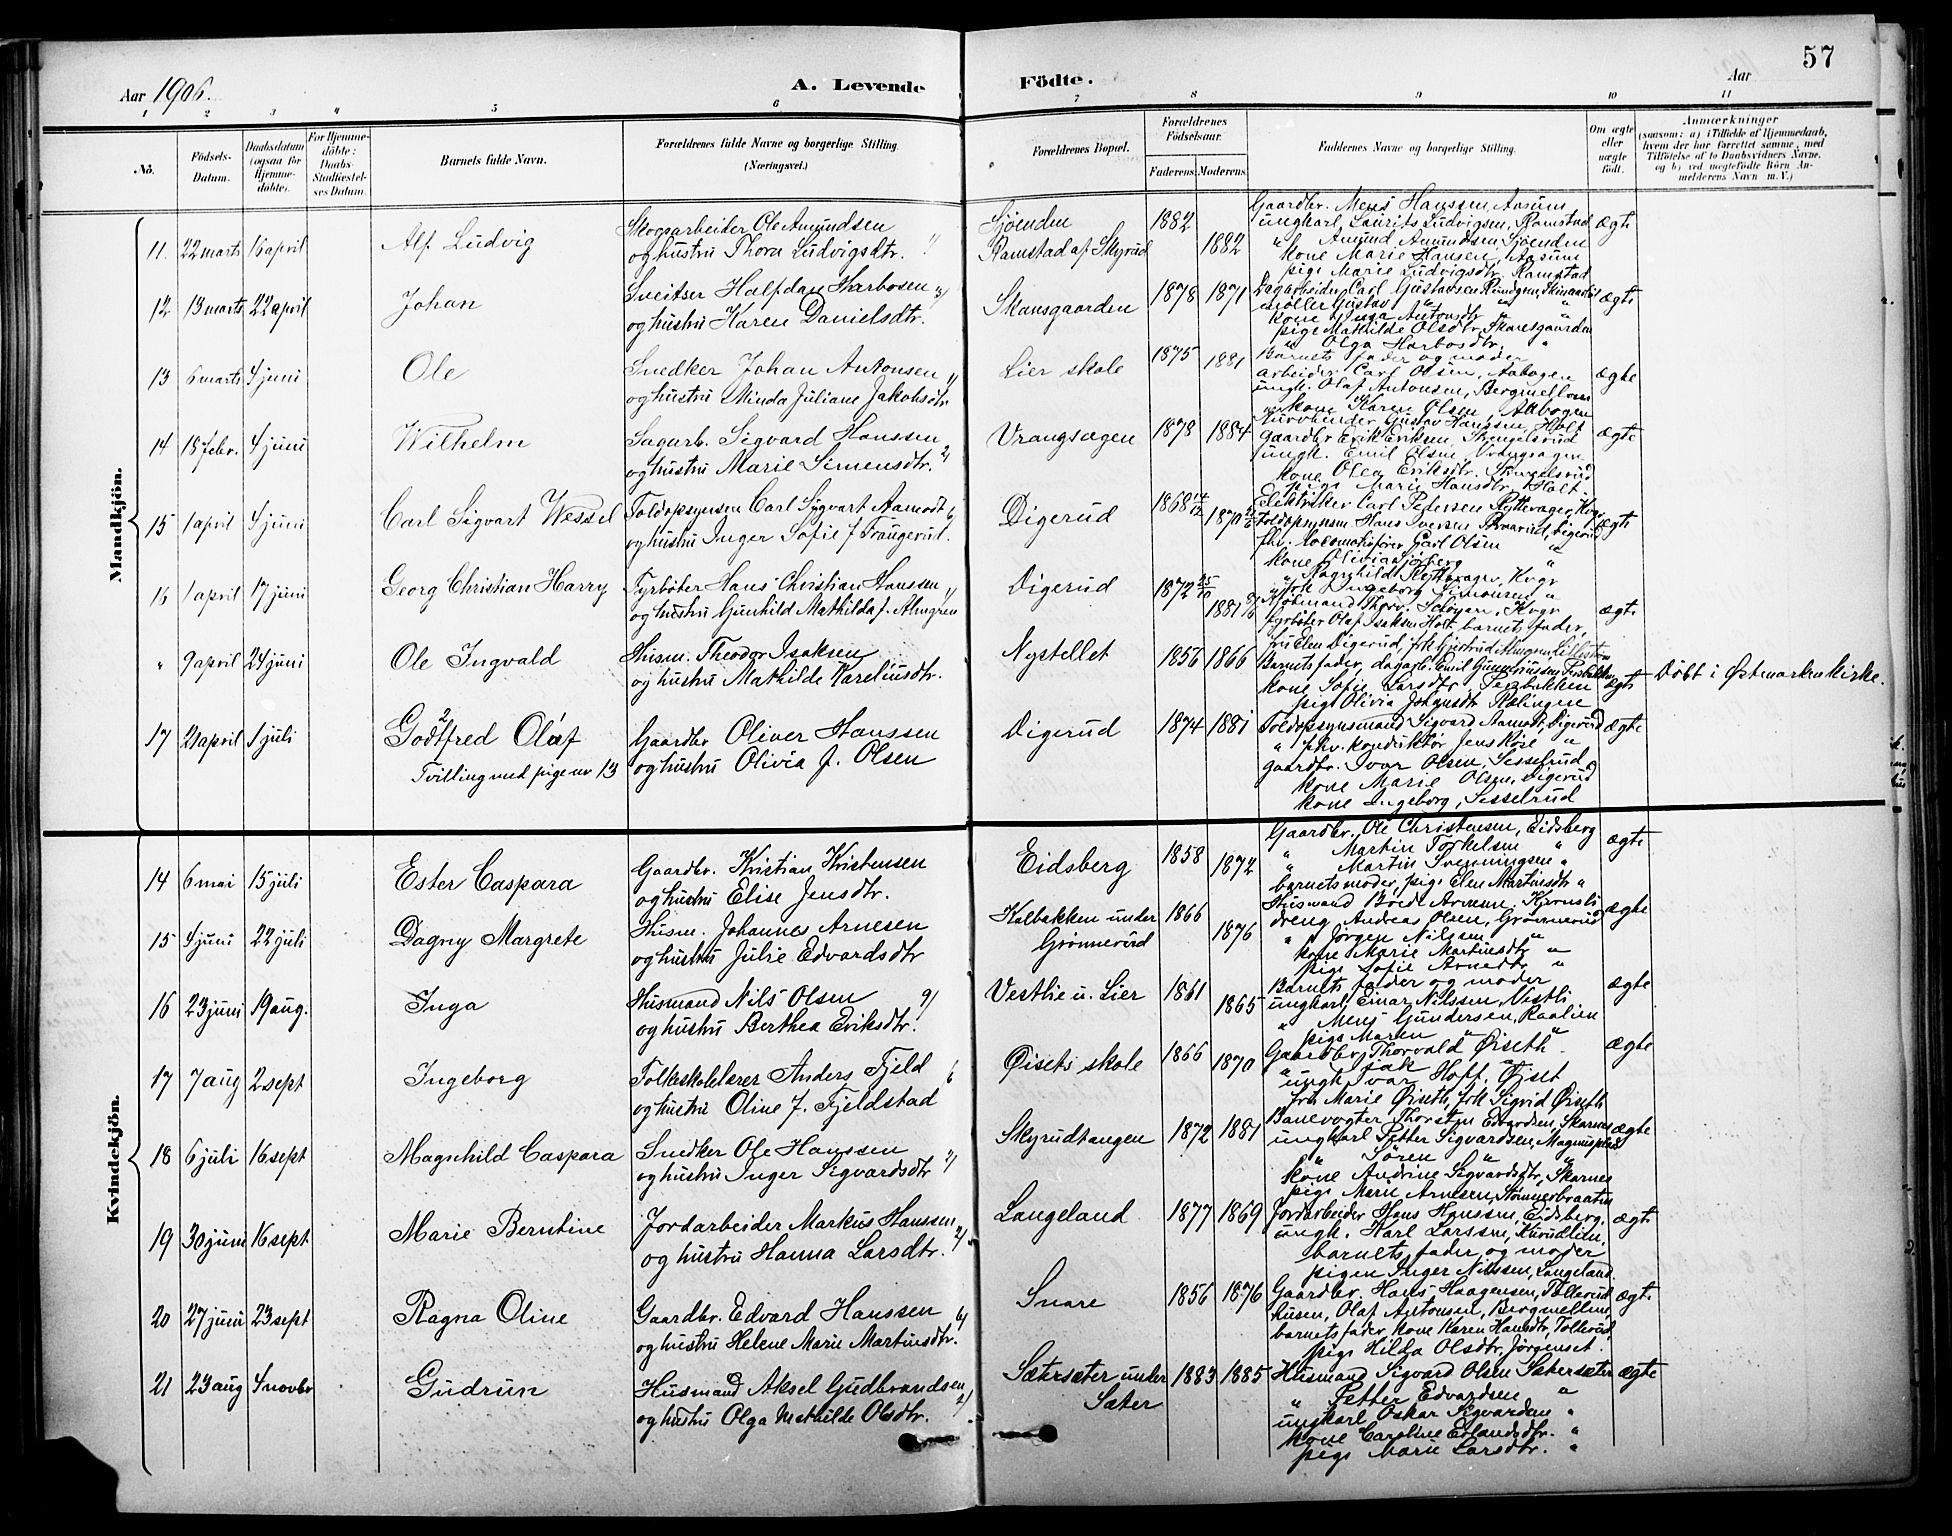 57
Aar 1906.
A. Levende Födte.
Aar
1 2 3 4 5 6 7 8 9 10 11
No.
Födsels-Datum.
Daabsdatum (ogsaa for Hjemme-döbte).
For Hjemme-döbte: Daabs-Stadfæstel-ses Datum.
Barnets fulde Navn.
Forældrenes fulde Navne og borgerlige Stilling.
(Næringsvei.)
Forældrenes Bopæl.
Forældrenes Födselsaar.
Faderens. Moderens.
Faddernes Navne og borgerlige Stilling.
Om ægte eller uægte födt.
Anmærkninger
(saasom: a) i Tilfælde af Hjemmedaab, hvem der har forrettet samme, med Tilföielse af to Daabsvidners Navne, og b) ved uægtefödte Börn An-melderens Navn m. V.)
Mandkjön.
11. 22 marts 16 april Alf Ludvig
Skogsarbeider Ole Amundsen
og hustru Thora Ludvigsdtr.
Sjøenden
Ramstad af Skyrud
1882 1882
Gaardbr. Mens Hanssen, Aasum
ungkarl Laurits Ludvigsen, Ramstad
" Amund Amundsen, Sjøenden
kone Marie Hansen, Aasum
pige Marie Ludvigsdtr. Ramstad
ægte
12 13 marts 22 april Johan
Sveitser Halfdan Harbosen
og hustru Karen Danielsdtr.
Skansgaarden
1878 1871
Dagarbeider Carl Gustavsen Rundgren,
møller Gustav " "
kone Inga Antonsdtr "
pige Mathilde Olsdtr. Skansgaarden
" Olga Harbosdtr. "
ægte
13 6 marts 4 juni Ole
Snedker Johan Antonsen
og hustru Minda Juliane Jakobsdtr
Lier skole
1875 1881
Barnets fader og moder
arbeider Carl Olsen, Aabogen
ungk. Olaf Antonsen, Bergmellom
kone Karen Olsen, Aabogen
ægte
14 18 febr. 4 juni Wilhelm
Sagarb. Sigvard Hanssen
og hustru Marie Simensdtr.
Vrangsagen
1878 1884
Kurvebinder Gustav Hanssen, Holt
gaardbr Erik Eriksen, Strengelsrud
ungk. Emil Olsen, Vrangsagen
kone Olea Eriksdtr. Strengelsrud
pige Marie Hansdtr. Holt.
ægte
15 1 april 4 juni Carl Sigvart Wessel
Toldopsynsm Carl Sigvart Aamodt
og hustru Inger Sofie f. Traugerud.
Digerud
1868 1870
Elektriker Carl Pedersen Ryttvager, Kvgr
toldopsynsm. Hans Iversen Digerud
fhv. Lokomotivfører Carl Olsen "
kone Olivia Sjøberg "
" Ragnhild Ryttvager, Kvgr
frk. Ingeborg Simonsen "
ægte
16 1 april 17 juni Georg Christian Harry
Fyrbøter Hans Christian Hanssen
og hustru Gunhild Mathilda f. Almgren
Digerud
1872 1881
Kjøbmand Thorv. Schøyen, Kvgr
fyrbøter Olaf Isaksen Holt barnets fader,
fru Elen Digerud, frk Gjertrud Almgren
ægte
" 9 april 24 juni Ole Ingvald
Husm. Theodor Isaksen
og hustru Mathilde Kareliusdtr.
Nystellet
1856 1866
Barnets fader, dagarb. Emil Gundersen Persbakken
kone Sofie Larsdtr. Persbakken
pige Olivia Johansdtr. Rølingen
ægte
Døbt i Østmarken Kirke.
17 21 april 1 juli Godtfred Olaf
Tvilling med pige nr 13
Gaardbr Oliver Hanssen
og hustru Olivia f. Olsen
Digerud
1874 1881
Toldopsynsmand Sigvard Aamodt, Digerud
" fhv. konduktør Jens Kose "
gaardbr. Ivar Olsen, Sesselrud
kone Marie Olsen, Digerud
kone Ingeborg, Sesselrud
ægte
Kvindekjön.
14 6 mai 15 juli Ester Caspara
Gaardbr. Kristian Kristensen
og hustru Elise Jensdtr.
Eidsberg
1858 1872
Gaardbr. Ole Christensen, Eidsberg
" Martin Torkelsen "
" Martin Svenningsen "
barnets moder, pige Elen Martinsdtr "
ægte
15 4 juni 22 juli Dagny Margrete
Husm. Johannes Arnesen
og hustru Julie Edvardsdtr
Kolbakken under
Grønnerud
1866 1876
Husmand Bredi Arnesen, Kjernsli
dreng Andreas Olsen, Grønnerud
" Jørgen Nilssen "
kone Marie Martinsdtr "
pige Sofie Arnesdtr "
ægte
16 23 juni 19 aug. Inga
Husmand Nils Olsen
og hustru Berthea Eriksdtr.
Vestlie u. Lier
1861 1865
Barnets fader og moder
ungkarl Einar Nilssen, Vestli
" Mens Gundersen, Raalien
pige Maren " "
ægte
17 7 aug 2 sept Ingeborg
Folkeskolelærer Anders Fjeld
og hustru Oline f. Fjeldstad
Øisets skole
1866 1870
Gaardbr. Thorvald Øiseth.
" Isak "
ungk Ivar Hoff, Øiset
frk Marie Øiseth, frk Sigrid Øiseth
ægte
18 6 juli 16 sept Magnhild Caspara
Snedker Ole Hanssen
og hustru Inger Sigvardsdtr
Skyrudtangen
1872 1881
Banevogter Thorsten Edvardsen, Skarnes
ungkarl Petter Sigvardsen, Magnusplads
" Søren " "
kone Andrine Sigvardsdtr, Skarnes
pige Marie Arnesen, Stømnerbraaten
ægte
19 30 juni 16 sept Marie Berntine
Jordarbeider Markus Hanssen
og hustru Hanna Larsdtr.
Langeland
1877 1869
Jordarbeider Hans Hanssen, Eidsberg.
ungk. Karl Larssen,
barnets fader og moder
pigen Inger Nilssen, Langeland
ægte
20 27 juni 23 sept Ragna Oline
Gaardbr. Edvard Hanssen
og hustru Helene Marie Martinsdtr.
Snare
1856 1876
Gaardbr. Hans Haagensen, Tollerud
husm, Olaf Antonsen, Bergmellem
barnets fader, kone Karen Hansdtr, Tollerud
pige Hilda Olsdtr, Jørgenset.
ægte
21 23 aug 4 novbr Gudrun
Husmand Aksel Gudbrandsen
og hustru Olga Mathilde Olsdtr.
Sætersæter under
Sæter
1883 1885
Husmand Sigvard Olsen Sætersæter
" Petter Edvardsen "
ungkarl Oskar Sigvardsen "
kone Caroline Erlandsdtr. "
pige Marie Larsdtr. "
ægte